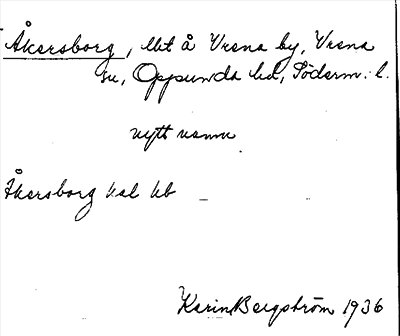 Åkersborg, lht å Vrena by, Vrena
sn, Oppunda hd, Söderm. l.
nytt namn
Åkersborg hsl kb
Karin Bergström 1936